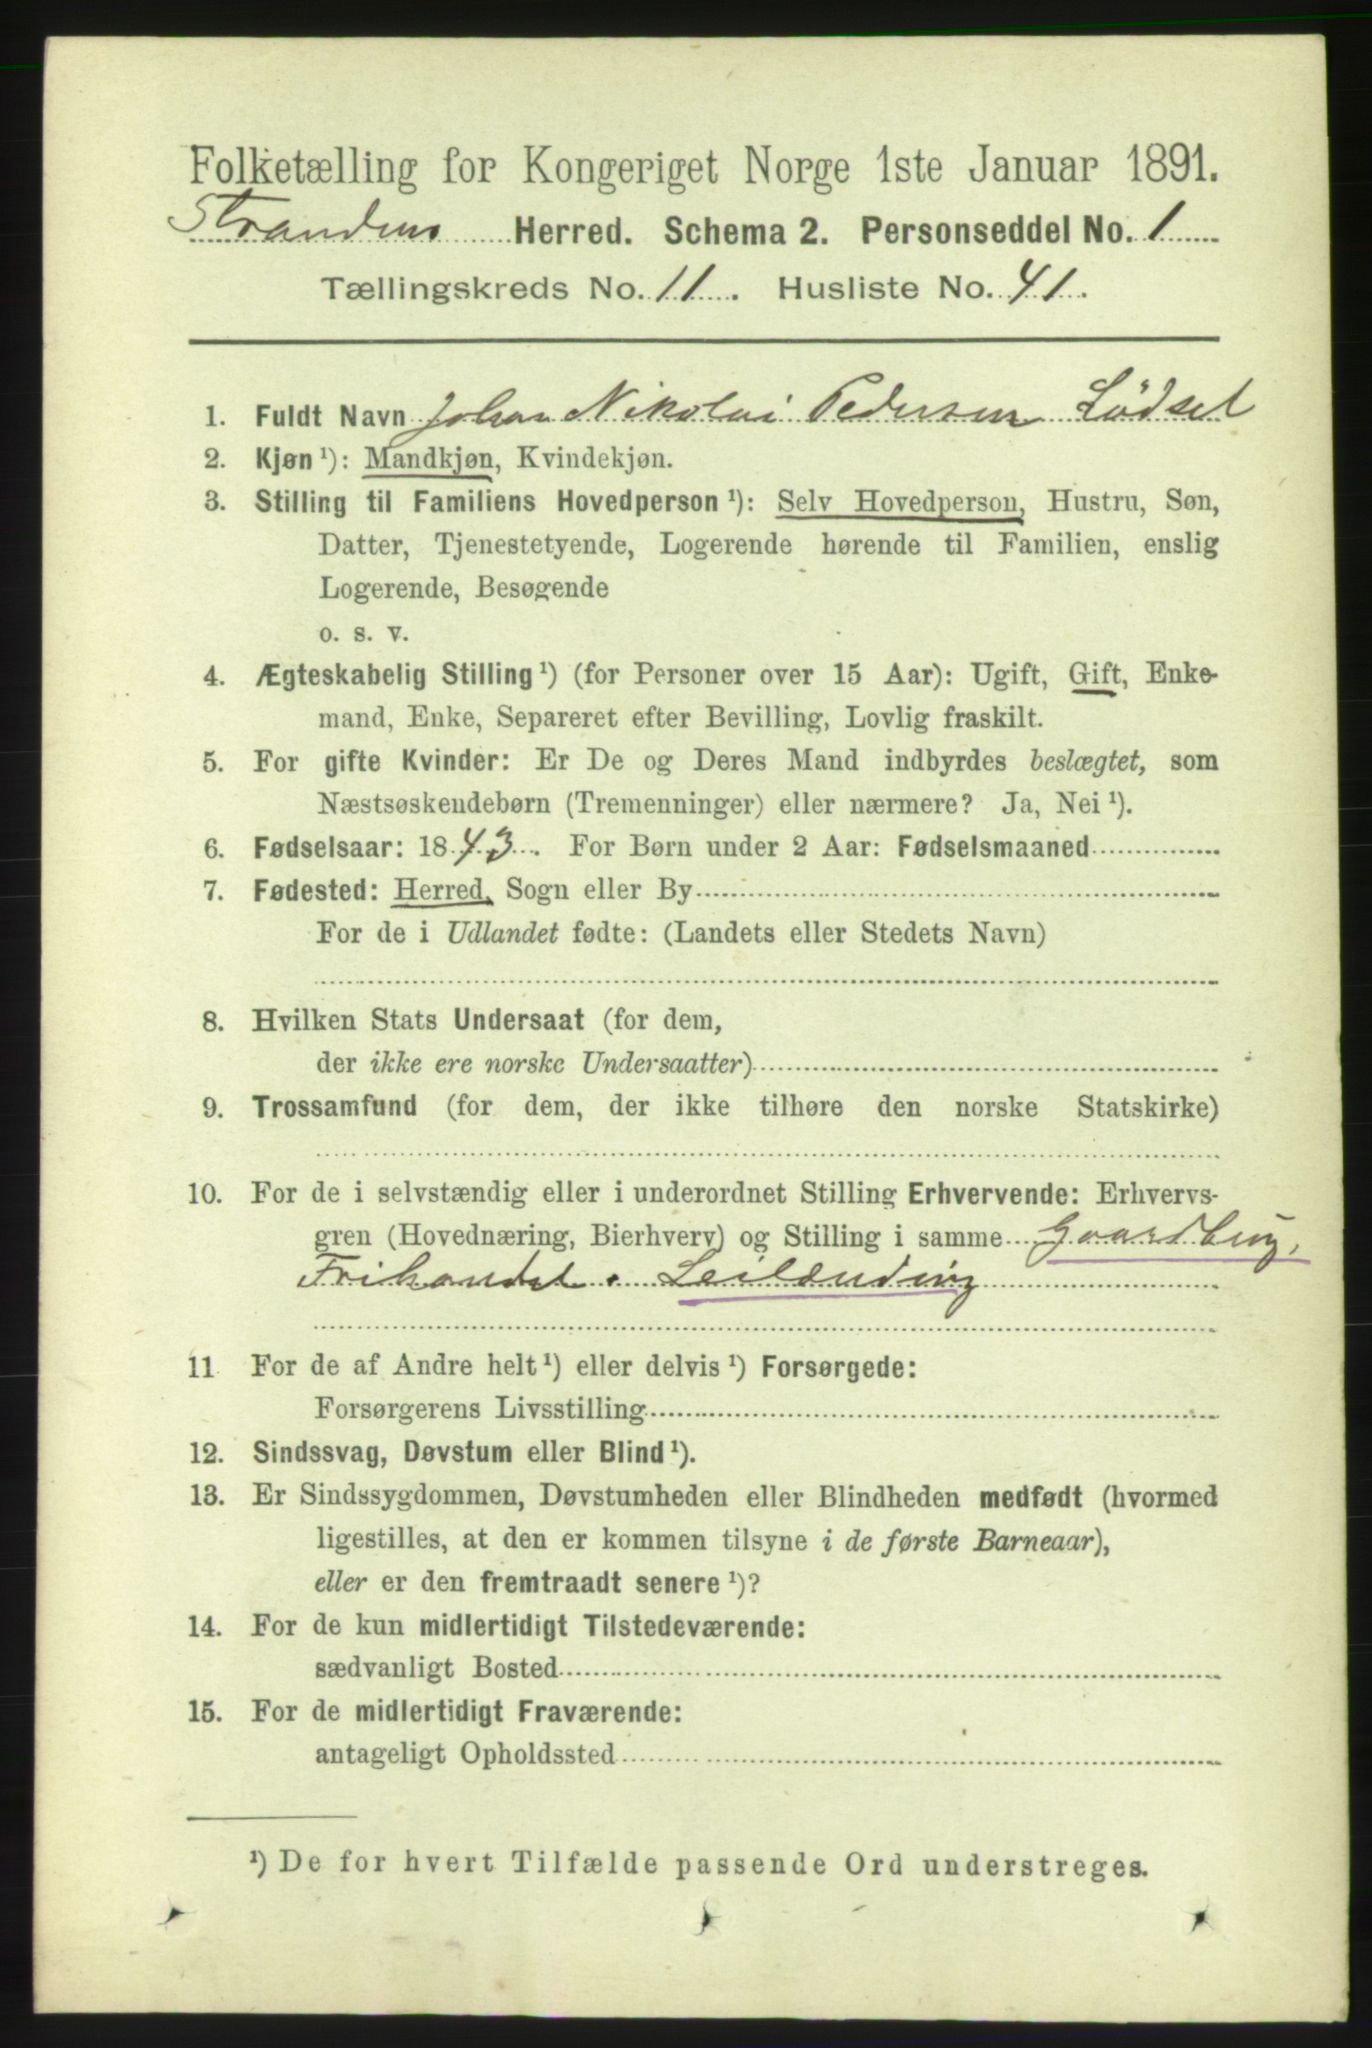 Folketælling for Kongeriget Norge 1ste Januar 1891.
Strandens Herred. Schema 2. Personseddel No. 1
Tællingskreds No. 11. Husliste No. 41.
1. Fuldt Navn Johan Nikolai Pedersen Lödsel
2. Kjøn¹): Mandkjøn, Kvindekjøn.
3. Stilling til Familiens Hovedperson¹): Selv Hovedperson, Hustru, Søn,
Datter, Tjenestetyende, Logerende hørende til Familien, enslig
Logerende, Besøgende
o. s. v.
4. Ægteskabelig Stilling¹) (for Personer over 15 Aar): Ugift, Gift, Enke-
mand, Enke, Separeret efter Bevilling, Lovlig fraskilt.
5. For gifte Kvinder: Er De og Deres Mand indbyrdes beslægtet, som
Næstsøskendebørn (Tremenninger) eller nærmere? Ja, Nei¹).
6. Fødselsaar: 1843. For Børn under 2 Aar: Fødselsmaaned
7. Fødested: Herred, Sogn eller By
For de i Udlandet fødte: (Landets eller Stedets Navn)
8. Hvilken Stats Undersaat (for dem,
der ikke ere norske Undersaatter)
9. Trossamfund (for dem, der ikke tilhøre den norske Statskirke)
10. For de i selvstændig eller i underordnet Stilling Erhvervende: Erhvervs-
gren (Hovednæring, Bierhverv) og Stilling i samme Gaardbrug,
Frihandel. Leilænding
11 For de af Andre helt¹) eller delvis¹) Forsørgede:
Forsørgerens Livsstilling
12. Sindssvag, Døvstum eller Blind¹).
13. Er Sindssygdommen, Døvstumheden eller Blindheden medfødt (hvormed
ligestilles, at den er kommen tilsyne i de første Barneaar),
eller er den fremtraadt senere¹)?
14. For de kun midlertidigt Tilstedeværende:
sædvanligt Bosted
15. For de midlertidigt Fraværende:
antageligt Opholdssted
¹) De for hvert Tilfælde passende Ord understreges.